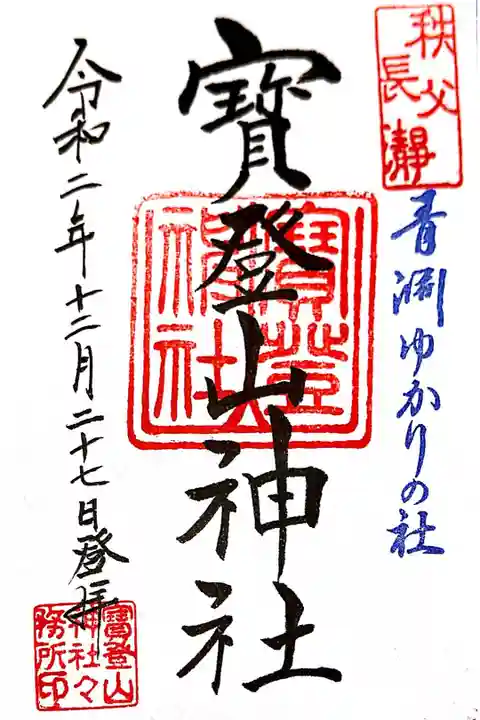 秩父
長瀞
青淵ゆかりの社
寳登山神社
寳登
神社
令和二年十二月二十七日登拝
寳登山
神社々
務所印